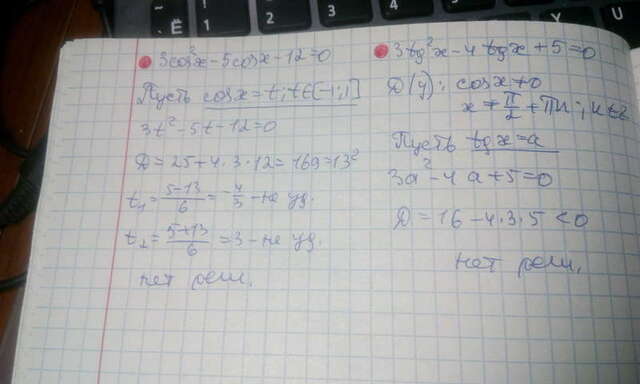 3cos²x - 5cosx - 12 = 0
Пусть cosx = t; t∈[-1;1]
3t² - 5t - 12 = 0
D = 25 + 4·3·12 = 169 = 13²
t₁ = (5-13)/6 = -4/3 - не уд.
t₂ = (5+13)/6 = 3 - не уд.
нет реш.
3tg²x - 4tgx + 5 = 0
D(y): cosx ≠ 0
x ≠ π/2 + πn; n∈Z
Пусть tgx = a
3a² - 4a + 5 = 0
D = 16 - 4·3·5 < 0
нет реш.